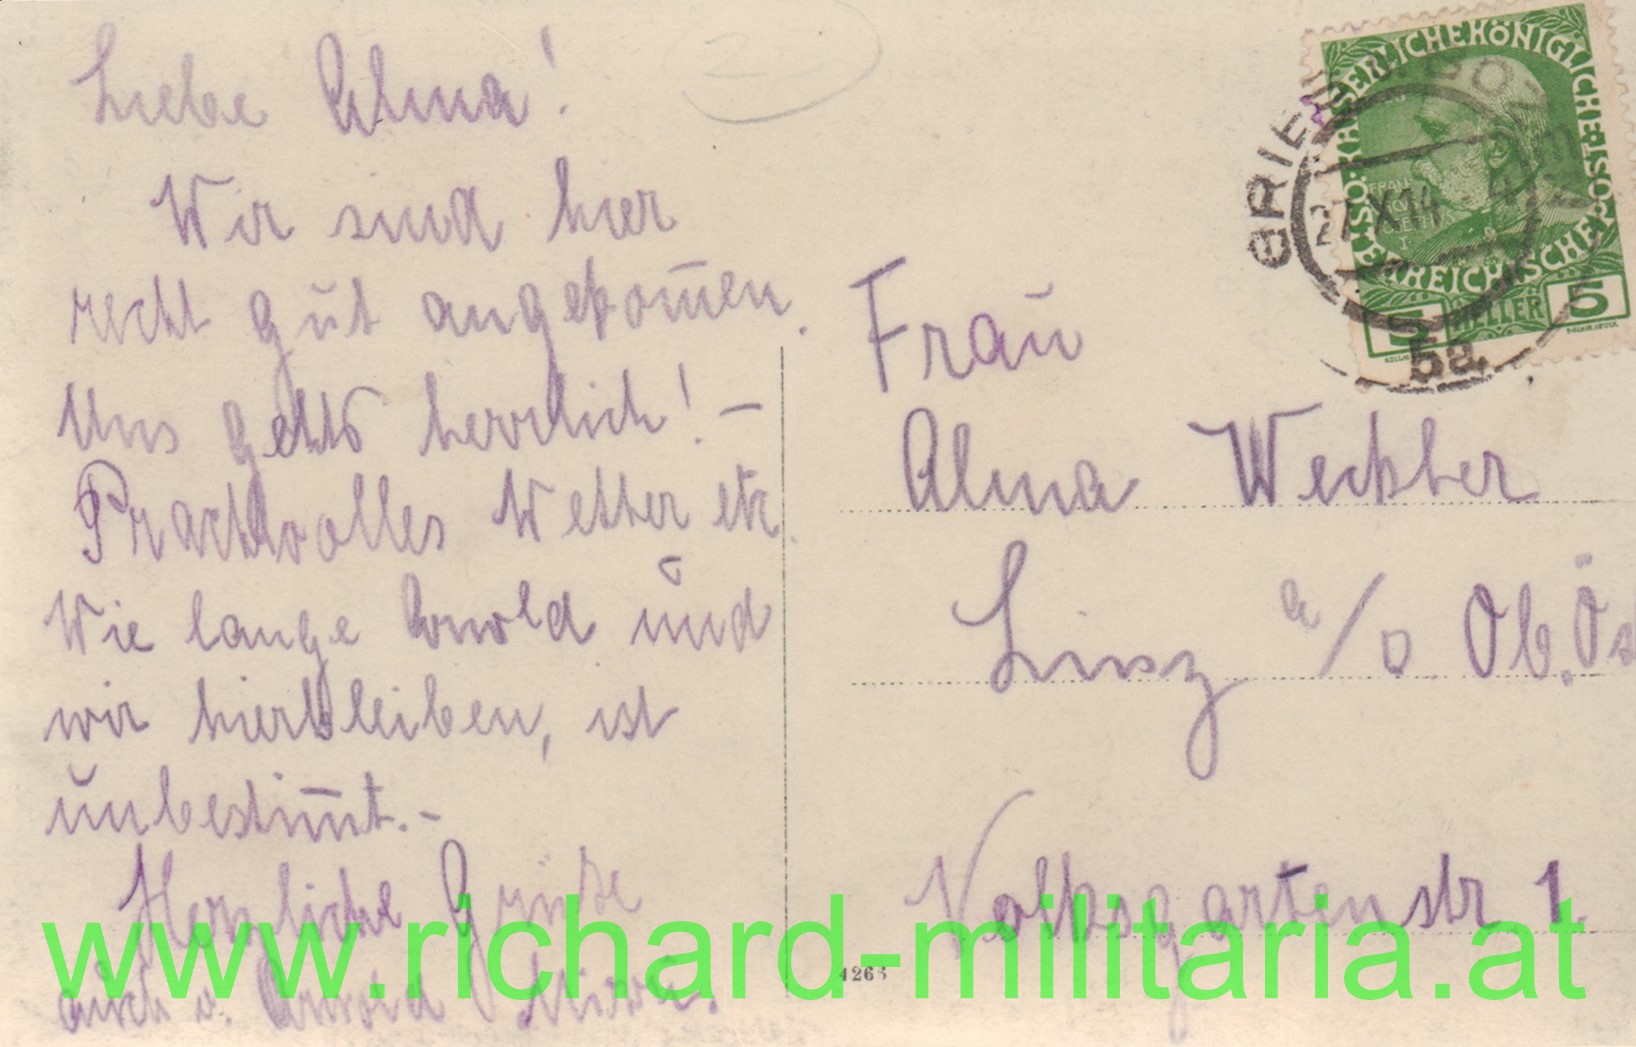 Liebe Alma!
Wir sind hier
recht gut angekom̅en.
Uns gehts herrlich! –
Prachtvolles Wetter etc.
Wie lange Arnold und
wir hierbleiben, ist
unbestim̅t. –
Herzliche Grüße
auch v. Arnold
Frau
Alma
Linz a/D. Ob. Ös
Volksgartenstr 1.
4268
KAISERLICHE KÖNIGLICHE ÖSTERREICHISCHE POST
5 HELLER 5
GRIES
BOZEN
27.X.14
5a
www.richard-militaria.at